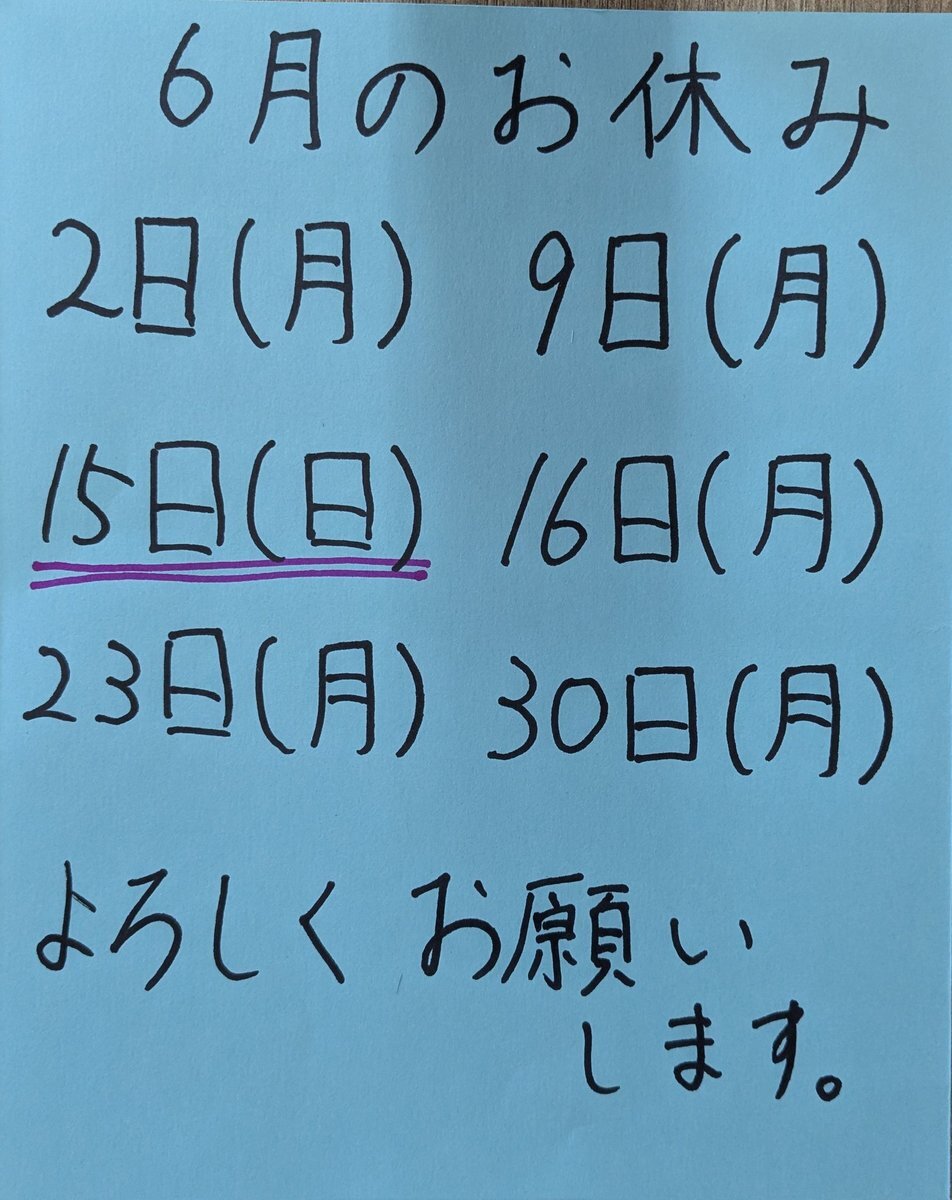 6月のお休み
2日(月) 9日(月)
15日(日) 16日(月)
23日(月) 30日(月)
よろしくお願い
します。